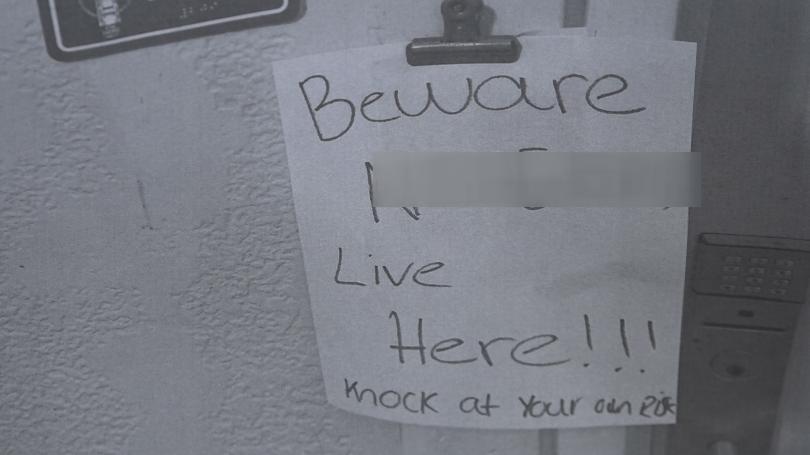 Beware
Live
Here!!!
Knock at your own Risk